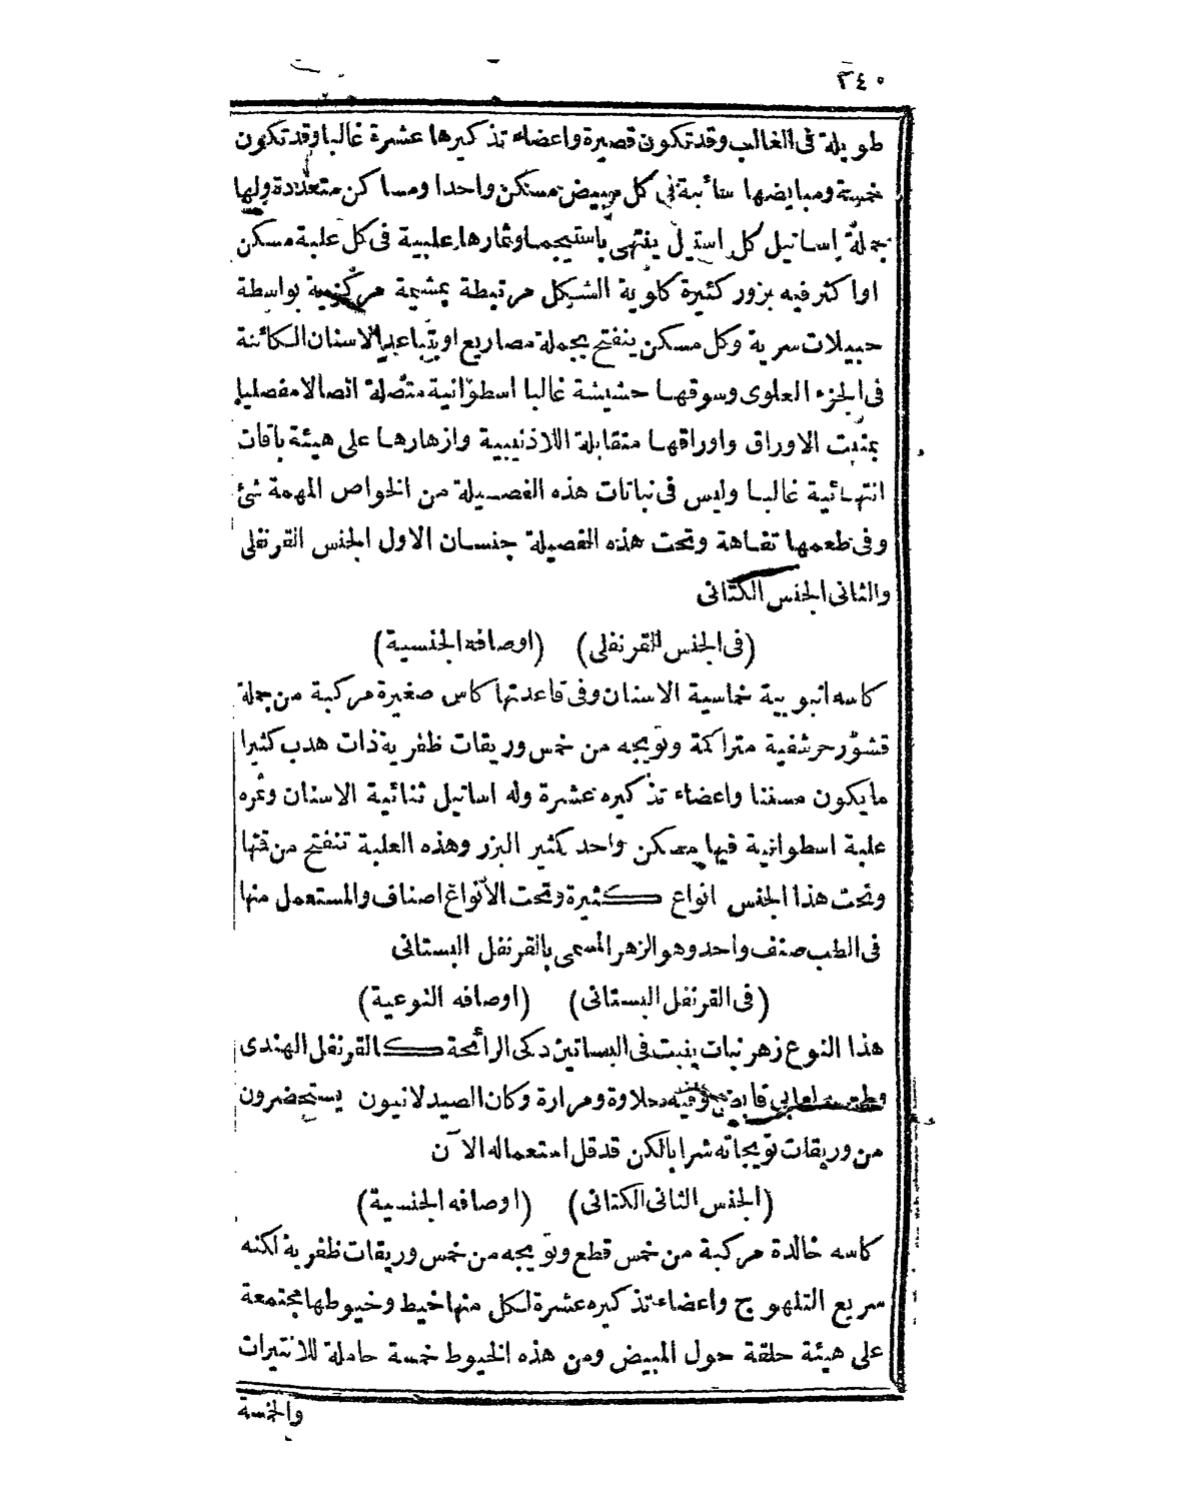 ٢٤٠
طويلة فى الغالب وقد تكون قصيرة واعضاء تذكيرها عشرة غالبا وقد تكون
خمسة ومبايضها سائبة فى كل مبيض مسكن واحدا ومساكن متعددة ولها
جملة اساتيل كل استيل ينتهى باستيجما وثمارها علبية فى كل علبة مسكن
او اكثر فيه بزور كثيرة كلوية الشكل مرتبطة بمشيمة مركزية بواسطة
حبيلات سرية وكل مسكن ينفتح بجملة مصاريع او بتباعد الاسنان الكائنة
فى الجزء العلوى وسوقها حشيشة غالبا اسطوانية متصلة اتصالا مفصليا
بمنبت الاوراق واوراقها متقابلة اللاذنيبية وازهارها على هيئة باقات
انتهائية غالبا وليس فى نباتات هذه الفصيلة من الخواص المهمة شئ
وفى طعمها تفاهة وتحت هذه الفصيلة جنسان الاول الجنس القرنفلى
والثانى الجنس الكتانى
(فى الجنس القرنفلى) (اوصافه الجنسية)
كاسه انبوبية خماسية الاسنان وفى قاعدتها كاس صغيرة مركبة من جملة
قشور حرشفية متراكمة وتويجه من خمس وريقات ظفرية ذات هدب كثيرا
مايكون مسننا واعضاء تذكيره عشرة وله اساتيل ثنائية الاسنان وثمره
علبة اسطوانية فيها مسكن واحد كثير البزر وهذه العلبة تنفتح من قمتها
وتحت هذا الجنس انواع كثيرة وتحت الانواع اصناف والمستعمل منها
فى الطب صنف واحد وهو الزهر المسمى بالقرنفل البستانى
(فى القرنفل البستانى) (اوصافه النوعية)
هذا النوع زهر نبات ينبت فى البساتين دكى الرائحة كالقرنفل الهندى
وطعمه لعابى قابض وفيه حلاوة ومرارة وكان الصيدلانيون يستحضرون
من وريقات تويجاته شرابا لكن قد قل استعماله الآن
(الجنس الثانى الكتانى) (اوصافه الجنسية)
كاسه خالدة مركبة من خمس قطع وتويجه من خمس وريقات ظفرية لكنه
سريع التلهوج واعضاء تذكيره عشرة لكل منها خيط وخيوطها مجتمعة
على هيئة حلقة حول المبيض ومن هذه الخيوط خمسة حاملة للانتيرات
والخمسة